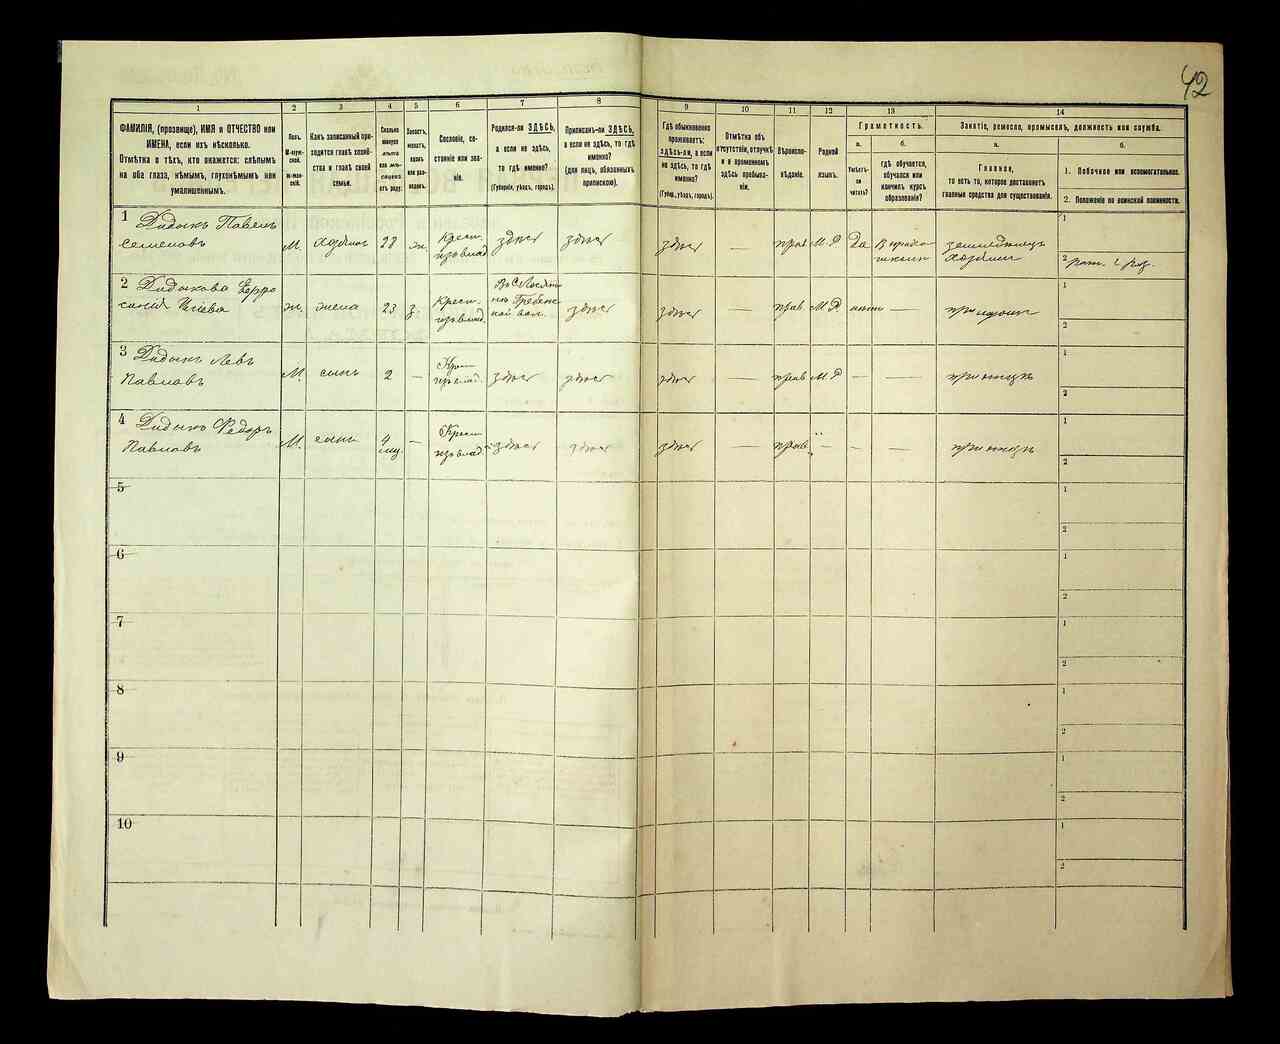 42
1
2
3
4
5
6
7
8
9
10
11
12
13
14
ФАМИЛІЯ, (прозвище), ИМЯ и ОТЧЕСТВО или
ИМЕНА, если ихъ нѣсколько.
Отмѣтка о тѣхъ, кто окажется: слѣпымъ
на оба глаза, нѣмымъ, глухонѣмымъ или
умалишеннымъ.
Полъ.
М-муж-
ской.
Ж-жен-
скій.
Какъ записанный при-
ходится главѣ хозяй-
ства и главѣ своей
семьи.
Сколько
минуло
лѣтъ
или мѣ-
сяцевъ
отъ роду.
Холостъ,
женатъ,
вдовъ
или раз-
веденъ.
Сословіе, со-
стояніе или зва-
ніе.
Родился-ли ЗДѢСЬ,
а если не здѣсь,
то гдѣ именно?
(Губернія, уѣздъ, городъ).
Приписанъ-ли ЗДѢСЬ,
а если не здѣсь, то гдѣ
именно?
(для лицъ, обязанныхъ
припискою).
Гдѣ обыкновенно
проживаетъ:
здѣсь-ли, а если
не здѣсь, то гдѣ
именно?
(Губер., уѣздъ, городъ).
Отмѣтка объ
отсутствіи, отлучкѣ
и о временномъ
здѣсь пребыва-
ніи.
Вѣроиспо-
вѣданіе.
Родной
языкъ.
Грамотность.
а.
б.
Умѣетъ-
ли
читать?
гдѣ обучается,
обучался или
кончилъ курсъ
образованія?
Занятіе, ремесло, промыселъ, должность или служба.
а.
б.
Главное,
то есть то, которое доставляетъ
главныя средства для существованія.
1. Побочное или вспомогательное.
2. Положеніе по воинской повинности.
1 Дидыкъ Павелъ
Семеновъ
М.
хозяинъ
28
ж.
Крест.
изъ влад.
здѣсь
здѣсь
здѣсь
—
прав.
М. Р
Да
земледѣлецъ
хозяинъ
1
2
2 Дидыкова Ефро
синія
ж.
жена
23
з.
Крест.
изъ влад.
здѣсь
здѣсь
—
прав.
М. Р.
нѣтъ
—
при мужѣ
1
2
3 Дидыкъ Левъ
Павловъ
М.
сынъ
2
—
здѣсь
здѣсь
здѣсь
—
прав
М. Р
—
—
при отцѣ
1
2
4 Дидыкъ Федоръ
Павловъ
М.
сынъ
4
мѣ.
—
Крест.
изъ влад.
здѣсь
здѣсь
здѣсь
—
прав.
—
—
—
при отцѣ
1
2
5
1
2
6
1
2
7
1
2
8
1
2
9
1
2
10
1
2